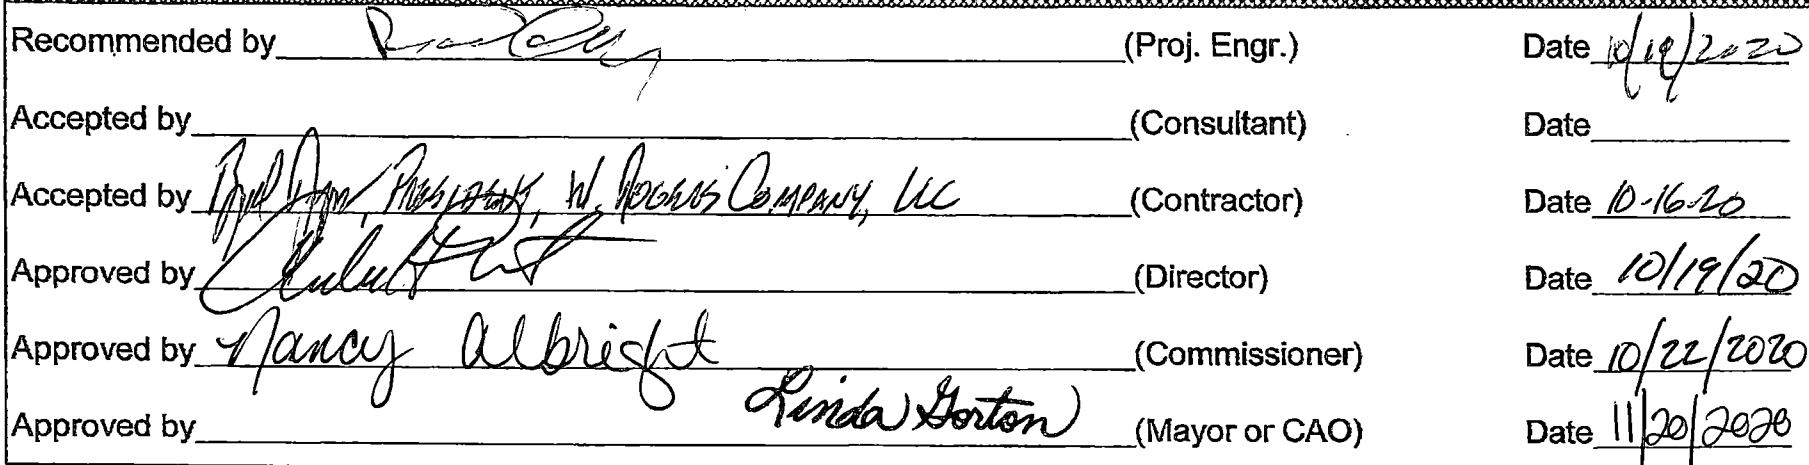 Recommended by (Proj. Engr.) Date 10/19/2020
Accepted by (Consultant) Date
Accepted by President, W. Rogers Company, LLC (Contractor) Date 10-16-20
Approved by (Director) Date 10/19/20
Approved by Nancy Albright (Commissioner) Date 10/22/2020
Approved by Linda Gorton (Mayor or CAO) Date 11/20/2020